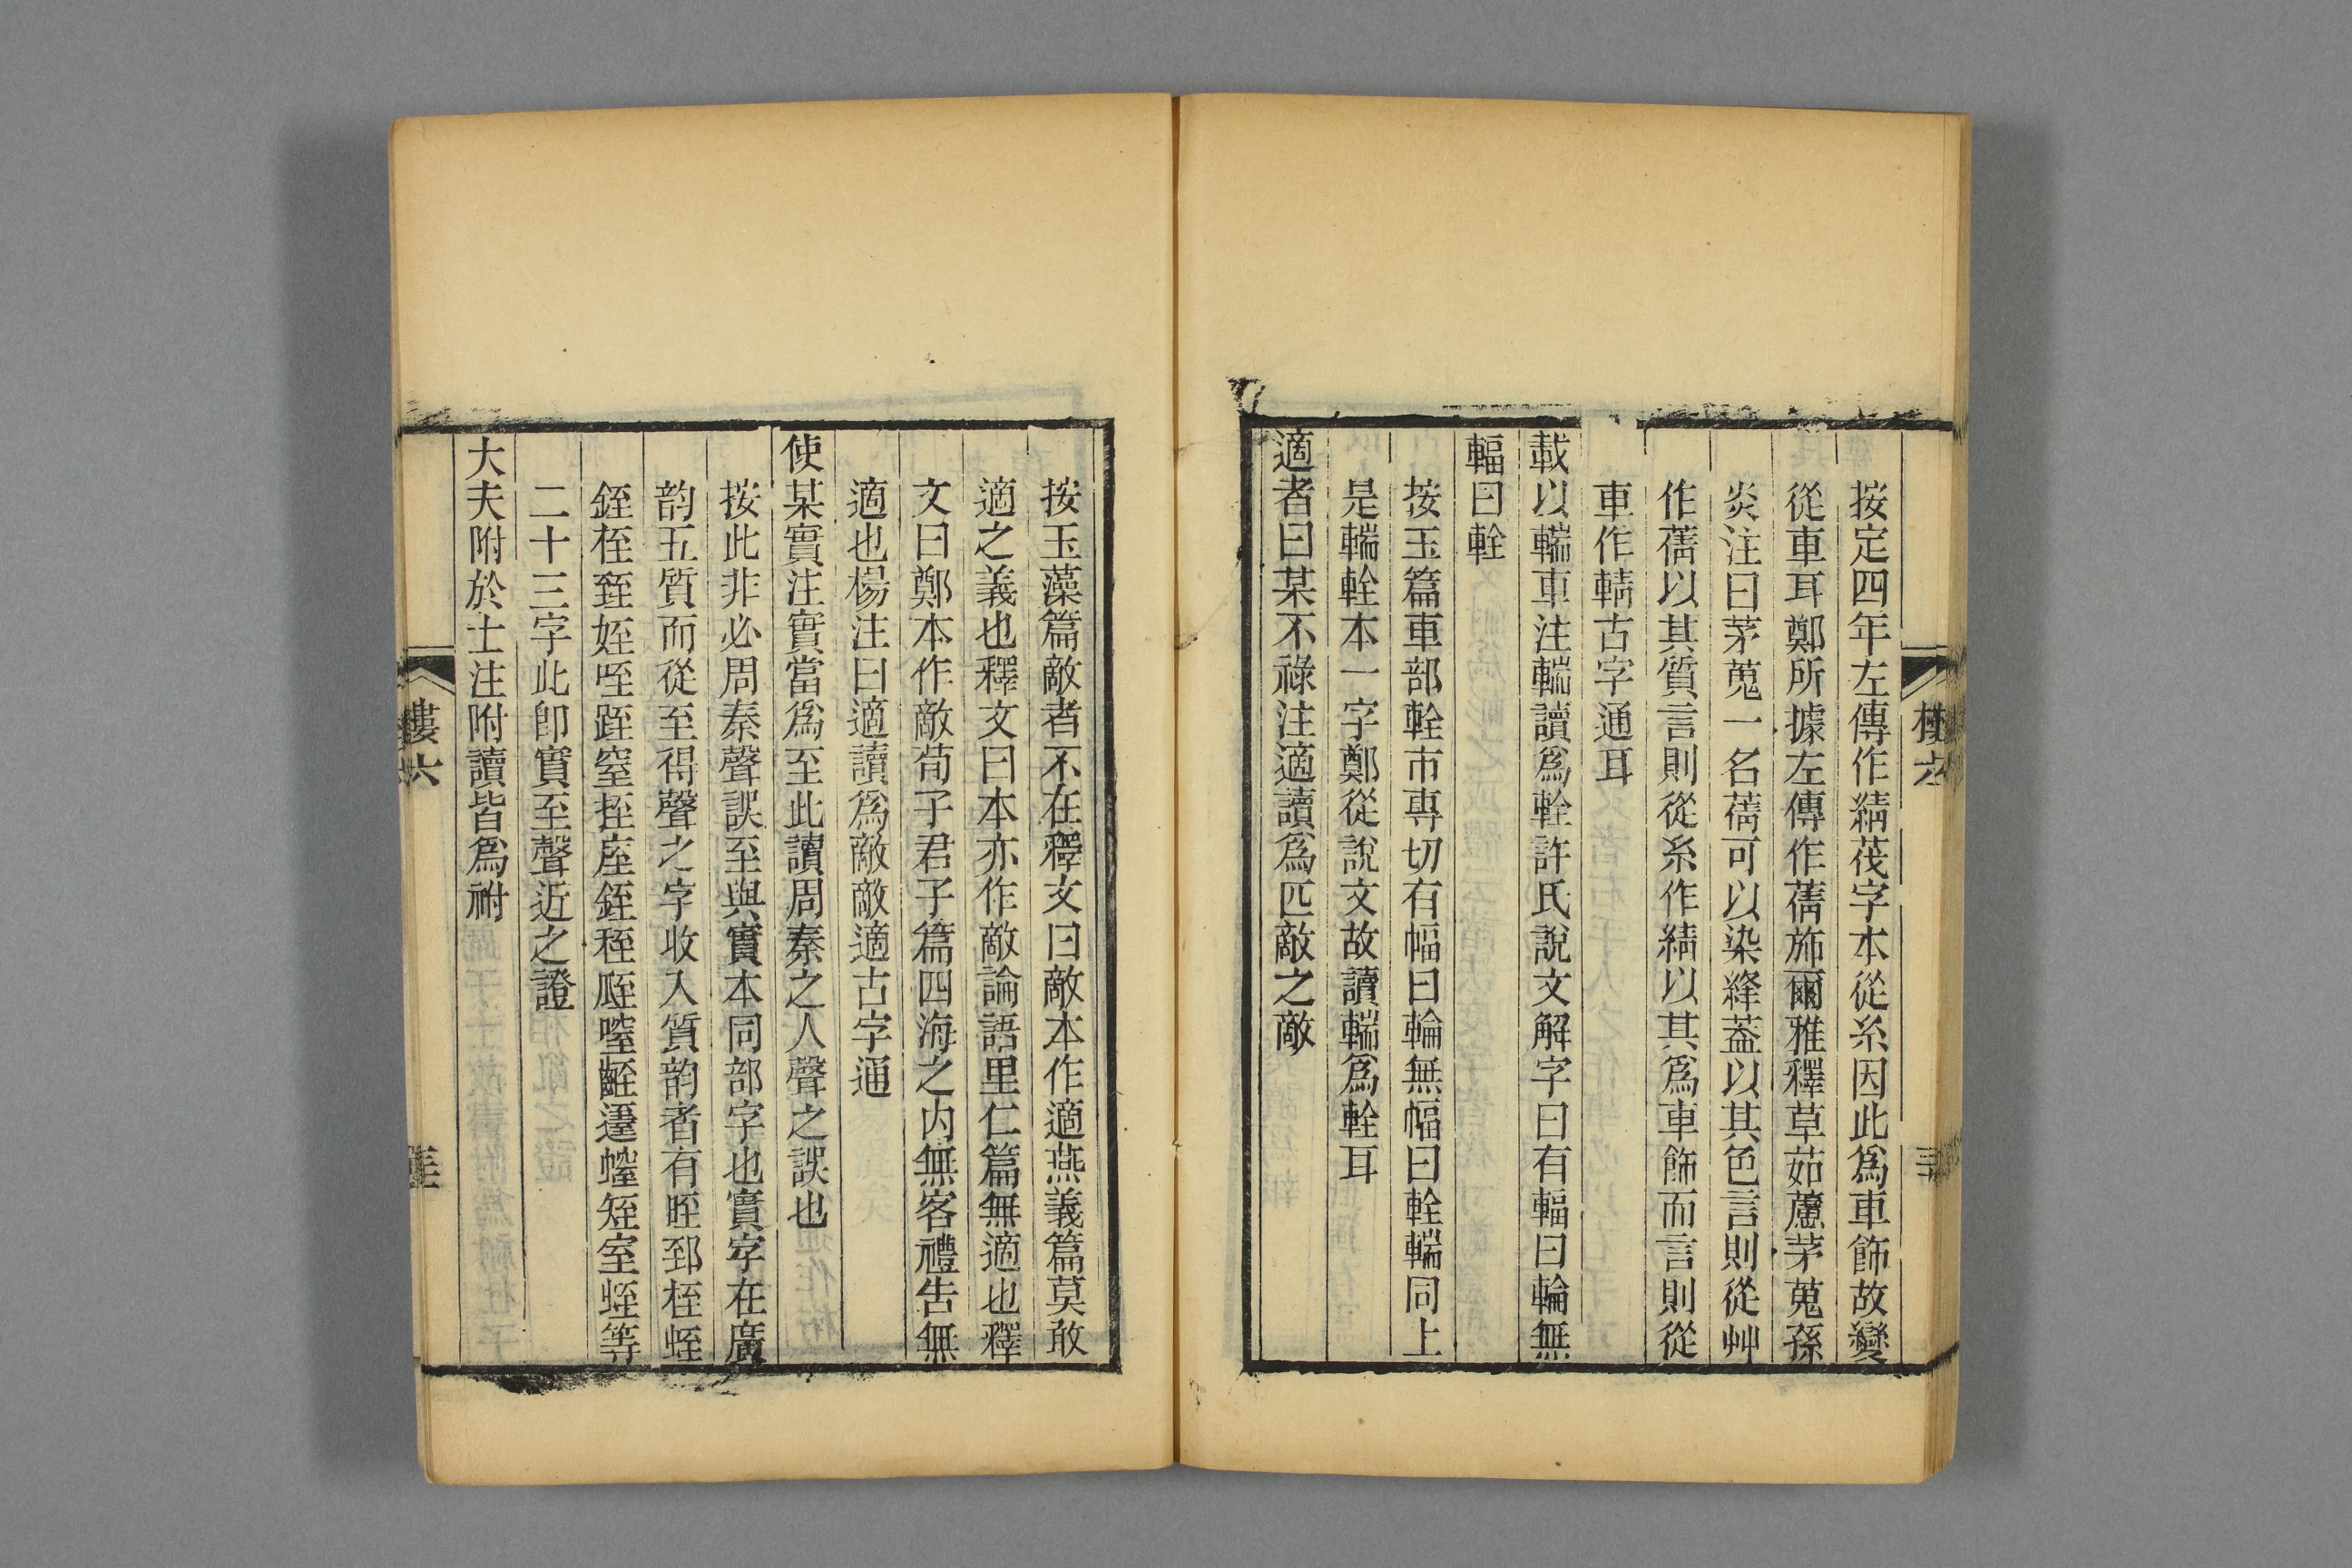 按定四年左傳作綪茷字本從糸因此爲車飾故變
從車耳鄭所據左傳作蒨斾爾雅釋草茹藘茅蒐孫
炎注曰茅蒐一名蒨可以染絳葢以其色言則從艸
作蒨以其質言則從糸作綪以其爲車飾而言則從
車作輤古字通耳
載以輲車注輲讀爲輇許氏說文解字曰有輻曰輪無
輻曰輇
按玉篇車部輇市專切有幅曰輪無幅曰輇輲同上
是輲輇本一字鄭從說文故讀輲爲輇耳
適者曰某不祿注適讀爲匹敵之敵
按玉藻篇敵者不在釋文曰敵本作適燕義篇莫敢
適之義也釋文曰本亦作敵論語里仁篇無適也釋
文曰鄭本作敵荀子君子篇四海之内無客禮告無
適也楊注曰適讀爲敵敵適古字通
使某實注實當爲至此讀周秦之人聲之誤也
按此非必周秦聲誤至與實本同部字也實字在廣
韵五質而從至得聲之字收入質韵者有咥郅桎蛭
銍桎臸姪咥跮窒挃庢銍秷胵㗌𪗻𨖹𢄢㽱室蛭等
二十三字此卽實至聲近之證
大夫附於士注附讀皆爲祔
樓六